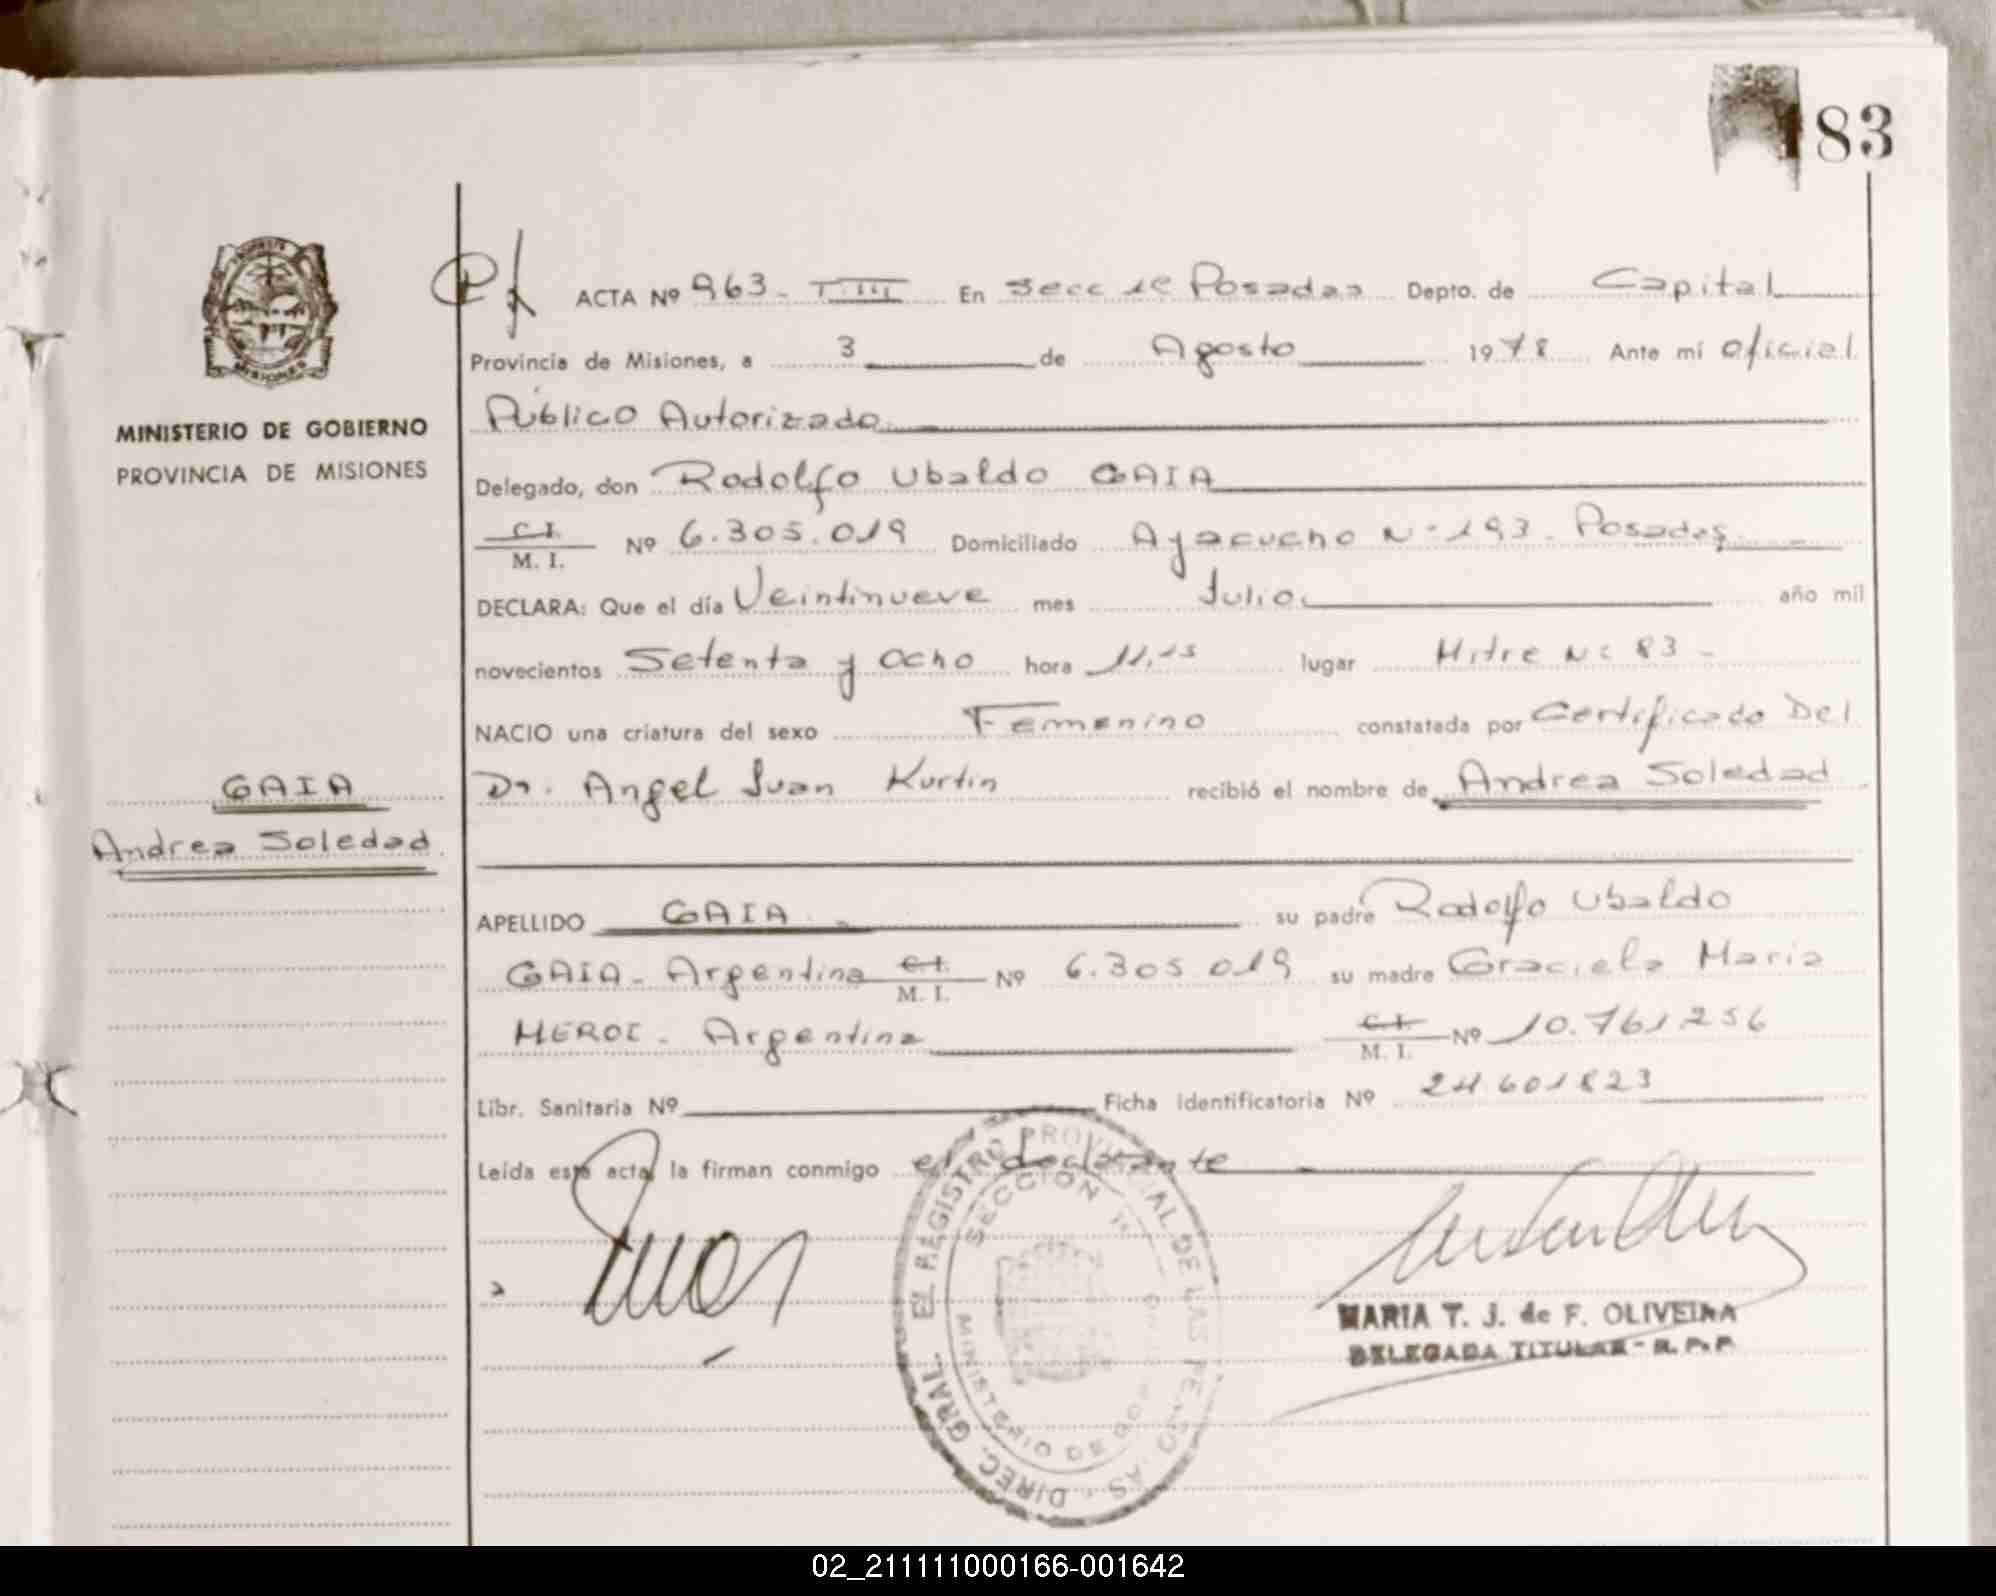 83
ACTA Nº 963 - T. III En Secc 1ª Posadas Depto. de Capital
Provincia de Misiones, a 3 de Agosto 1978 Ante mí Oficial
Público Autorizado
MINISTERIO DE GOBIERNO
PROVINCIA DE MISIONES
Delegado, don Rodolfo Ubaldo GAIA
C.I.
M. I. Nº 6.305.019 Domiciliado Ayacucho Nº 193 - Posadas
DECLARA: Que el día Veintinueve mes Julio año mil
novecientos Setenta y Ocho hora 11,15 lugar Mitre Nº 83 -
NACIO una criatura del sexo Femenino constatada por Certificado Del
GAIA
Dr. Angel Juan Kurtin recibió el nombre de Andrea Soledad
Andrea Soledad
APELLIDO GAIA - su padre Rodolfo Ubaldo
GAIA - Argentina C.I. M. I. Nº 6.305.019 su madre Graciela Maria
Argentina C.I. M. I. Nº 10.761256
Libr. Sanitaria Nº Ficha identificatoria Nº 24601823
Leída esta acta, la firman conmigo el declarante
DIREC. GRAL. EL REGISTRO PROVINCIAL DE LAS PERSONAS
SECCION
MINISTERIO DE GOBIERNO
MARIA T. J. de F. OLIVEIRA
DELEGADA TITULAR - R. P. P
02_211111000166-001642